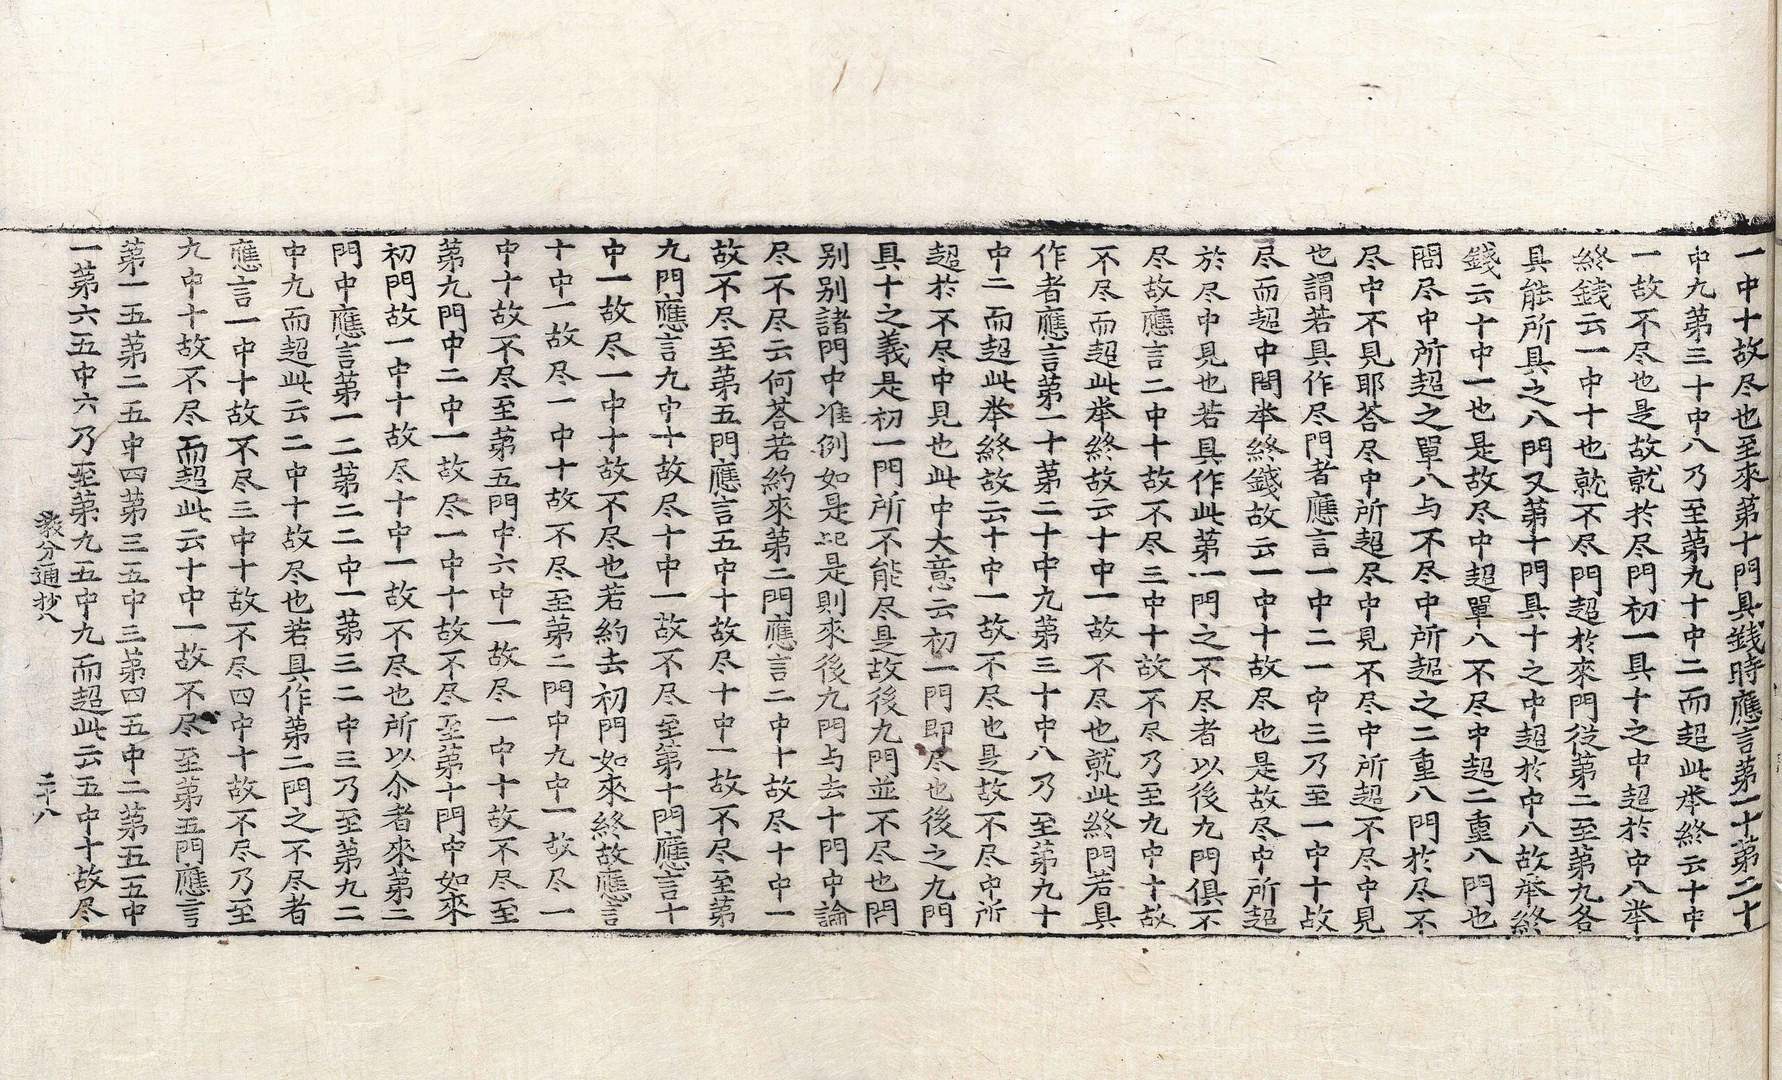 一中十故尽也至來第十門具錢時應言第一十第二十
中九第三十中八乃至第九十中二而超此举終云十中
一故不尽也是故就於尽門初一具十之中超於中八举
終錢云一中十也就不尽門超於來門從第二至第九各
具能所具之八門又第十門具十之中超於中八故举終
錢云十中一也是故尽中超單八不尽中超二重八門也
問尽中所超之單八与不尽中所超之二重八門於尽不
尽中不見耶答尽中所超尽中見不尽中所超不尽中見
也謂若具作尽門者應言一中二一中三乃至一中十故
尽而超中間举終錢故云一中十故尽也是故尽中所超
於尽中見也若具作此第一門之不尽者以後九門俱不
尽故應言二中十故不尽三中十故不尽乃至九中十故
不尽而超此举終故云十中一故不尽也就此終門若具
作者應言第一十第二十中九第三十中八乃至第九十
中二而超此举終故云十中一故不尽也是故不尽中所
超於不尽中見也此中大意云初一門即尽也後之九門
具十之義是初一門所不能尽是故後九門並不尽也問
别别諸門中准例如是記是則來後九門与去十門中論
尽不尽云何荅若約來第二門應言二中十故尽十中一
故不尽至第五門應言五中十故尽十中一故不尽至第
九門應言九中十故尽十中一故不尽至第十門應言十
中一故尽一中十故不尽也若約去初門如來終故應言
十中一故尽一中十故不尽至第二門中九中一故尽一
中十故不尽至第五門中六中一故尽一中十故不尽至
第九門中二中一故尽一中十故不尽至第十門中如來
初門故一中十故尽十中一故不尽也所以尒者來第二
門中應言第一二第二二中一第三二中三乃至第九二
中九而超此云二中十故尽也若具作第二門之不尽者
應言一中十故不尽三中十故不尽四中十故不尽乃至
九中十故不尽而超此云十中一故不尽至第五門應言
第一五第二五中四第三五中三第四五中二第五五中
一第六五中六乃至第九五中九而超此云五中十故尽
教分通抄八
二十八